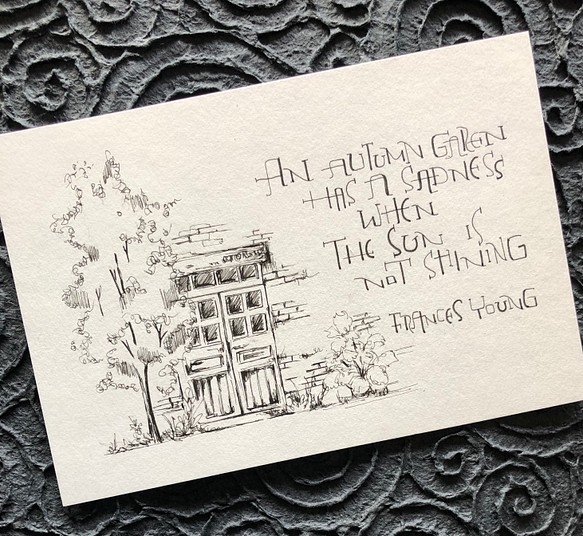 AN AUTUMN GAREN
HAS A SADNESS
WHEN
THE SUN IS
NOT SHINING
FRANCES YOUNG